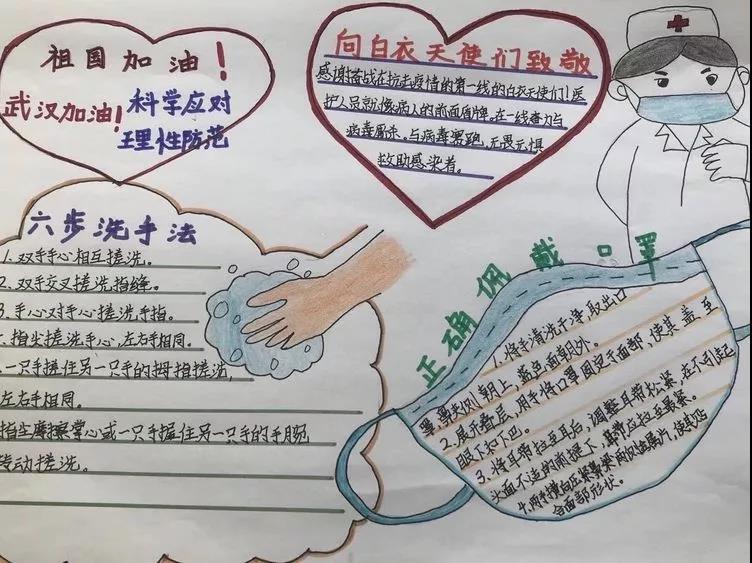 祖国加油!
武汉加油!
科学应对
理性防范
向白衣天使们致敬
感谢奋战在抗击疫情的第一线的白衣天使们!医
护人员就像病人的前面盾牌,在一线奋力与
病毒厮杀、与病毒赛跑,无畏无惧
救助感染者。
六步洗手法
1.双手手心相互搓洗。
2.双手交叉搓洗指缝。
3.手心对手心搓洗手指。
指尖搓洗手心,左右手相同。
一只手握住另一只手的拇指搓洗,
左右手相同。
指尖摩擦掌心或一只手握住另一只手的手腕
转动搓洗。
正确佩戴口罩
1.将手清洗干净,取出口
罩,鼻夹侧朝上,蓝色面朝外。
2.展开叠层,用手将口罩固定于面部,使其盖至
眼下和下巴。
3.将耳带拉至耳后,调整耳带松紧,在不引起
面不适的前提下,耳带应拉至最紧。
4.两手横向压紧鼻梁两侧金属片,使其贴
合面部形状。